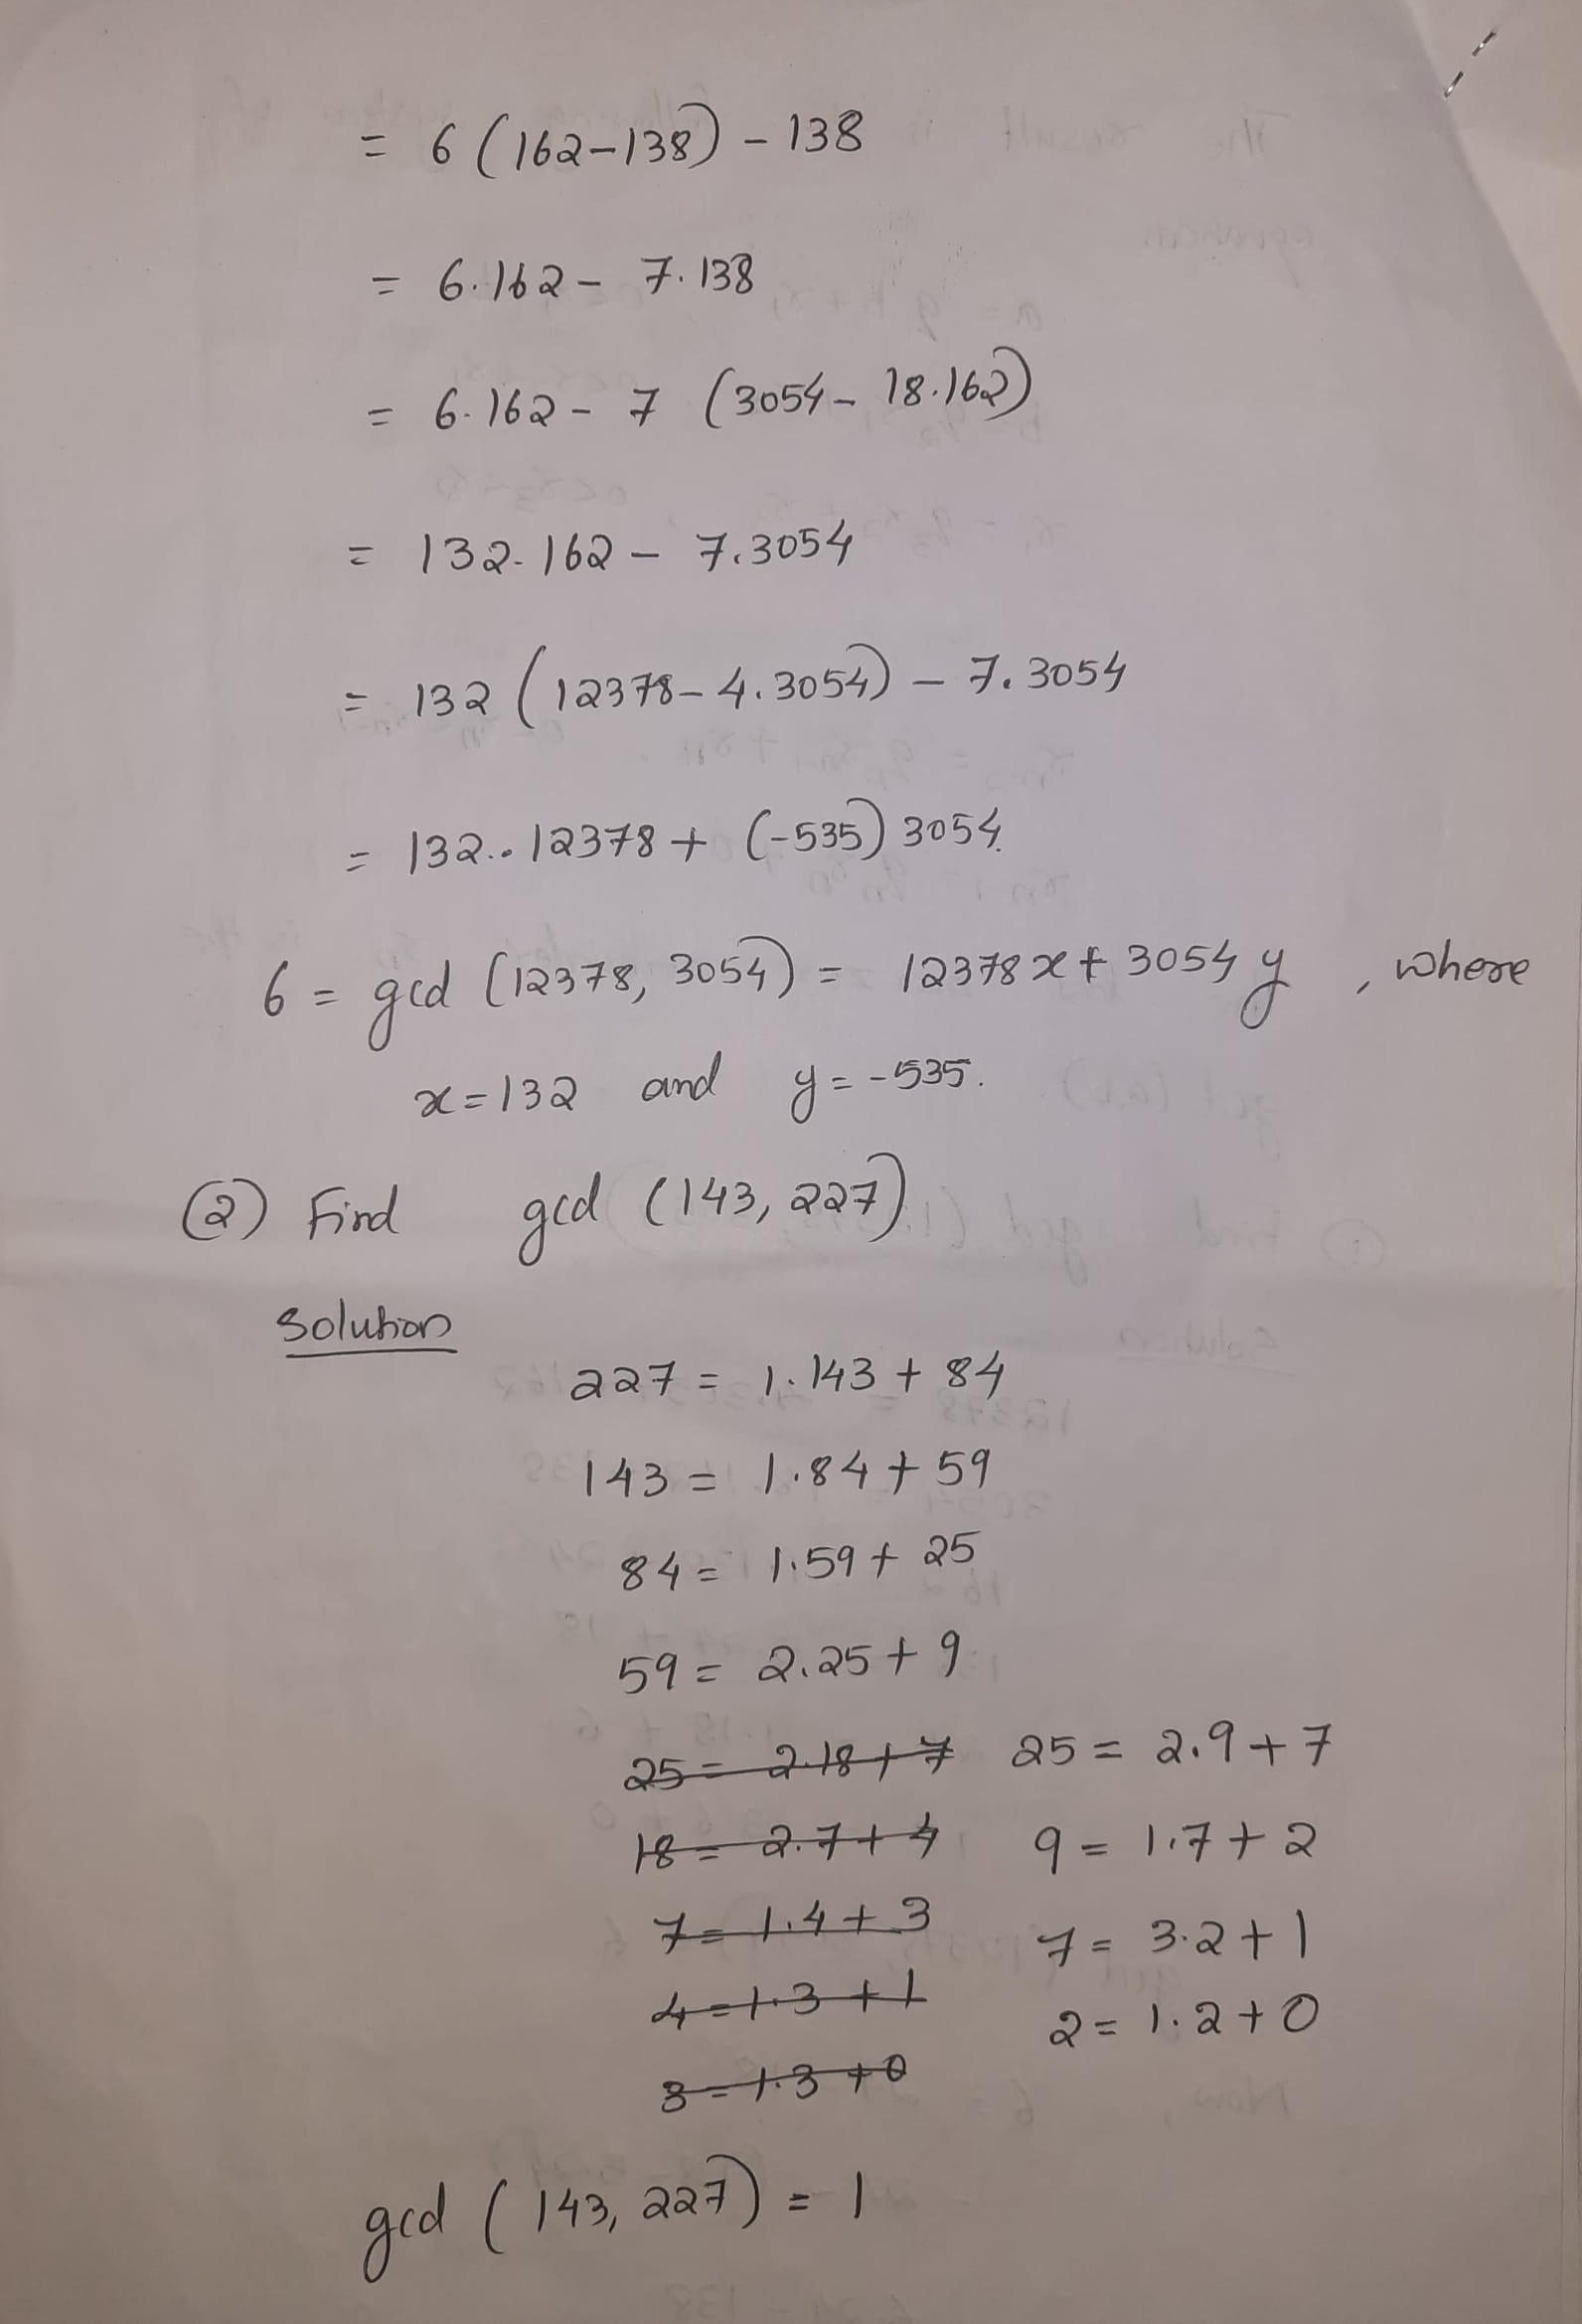 = 6 (162-138) - 138
= 6.162 - 7.138
= 6.162 - 7 (3054 - 18.162)
= 132.162 - 7.3054
= 132 (12378 - 4.3054) - 7.3054
= 132..12378 + (-535) 3054.
6 = gcd (12378, 3054) = 12378x + 3054y, where
x = 132 and y = -535.
(2) Find gcd (143, 227)
Solution
227 = 1.143 + 84
143 = 1.84 + 59
84 = 1.59 + 25
59 = 2.25 + 9
25 = 2.18 + 7 25 = 2.9 + 7
18 = 2.7 + 4 9 = 1.7 + 2
7 = 1.4 + 3 7 = 3.2 + 1
4 = 1.3 + 1 2 = 1.2 + 0
3 = 1.3 + 0
gcd (143, 227) = 1